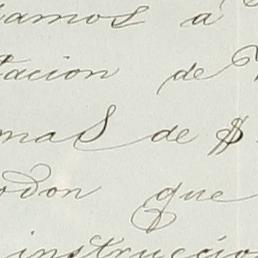 amos á
tacion de
mas de $
odon que
instruccio